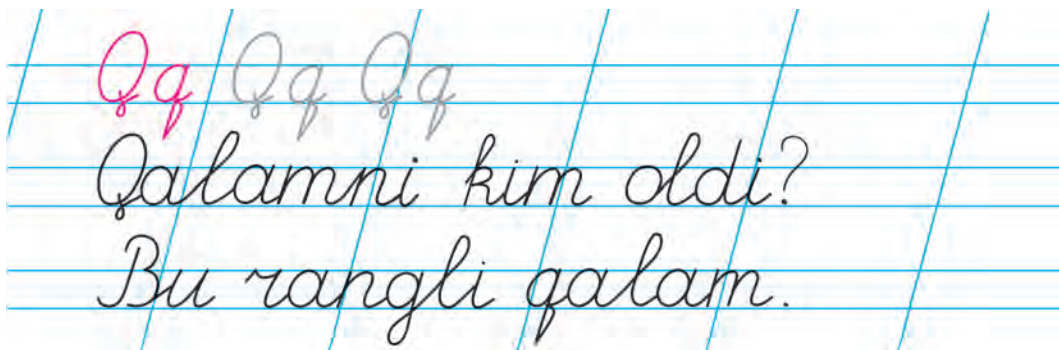 Qq Qq Qq
Qalamni kim oldi?
Bu rangli qalam.